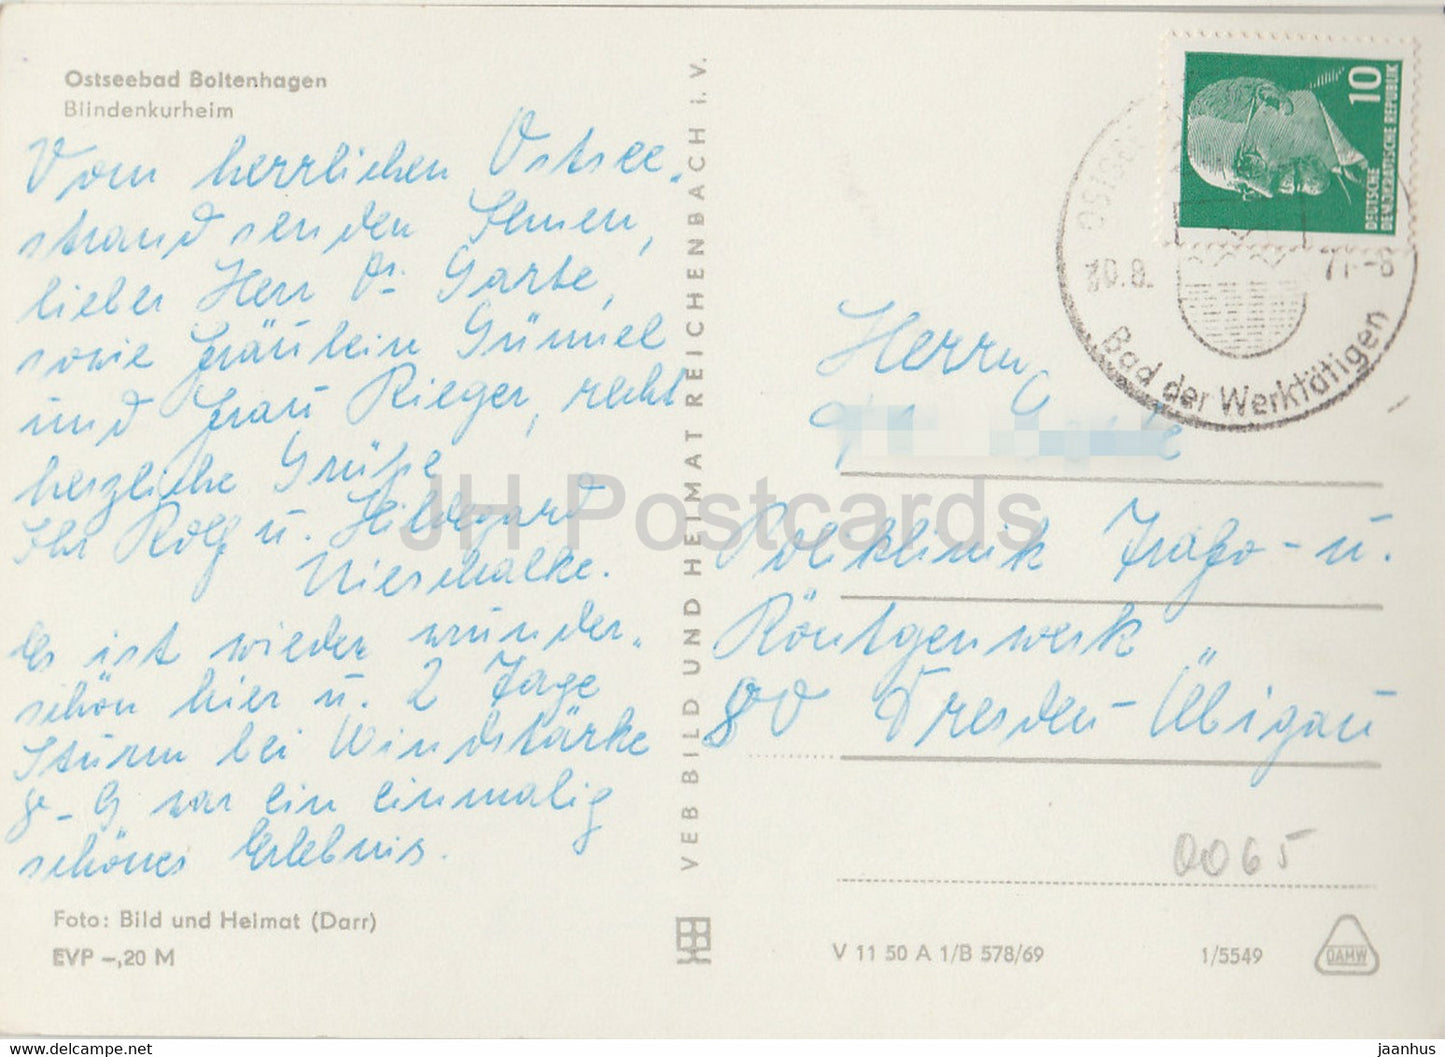 Ostseebad Boltenhagen
Blindenkurheim
Vom herrlichen Ostsee-
strand senden Ihnen,
lieber Herr Dr. Garte,
sowie Fräulein Günnel
und Frau Rieger, recht
herzliche Grüße
Ihr Rolf u. Hildegard
Nieschalke.
Es ist wieder wunder-
schön hier u. 2 Tage
Sturm bei Windstärke
8-9 war ein einmalig
schönes Erlebnis.
Foto: Bild und Heimat (Darr)
EVP –,20 M
VEB BILD UND HEIMAT REICHENBACH i. V.
10
DEUTSCHE
DEMOKRATISCHE REPUBLIK
OSTSEE
30.8. 71-8
Bad der Werktätigen
Herrn
Poliklinik Trafo- u.
Röntgenwerk
80 Dresden-Übigau
0065
V 11 50 A 1/B 578/69
1/5549
DAMW
JH Postcards
www.delcampe.net
jaanhus